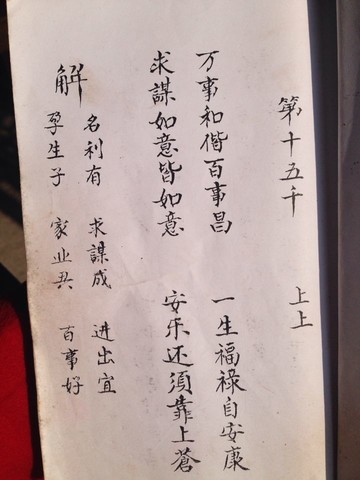 第十五千 上上
万事和偕百事昌 一生福禄自安康
求謀如意皆如意 安乐还須靠上蒼
解
名利有 求謀成 进出宜
孕生子 家业兴 百事好